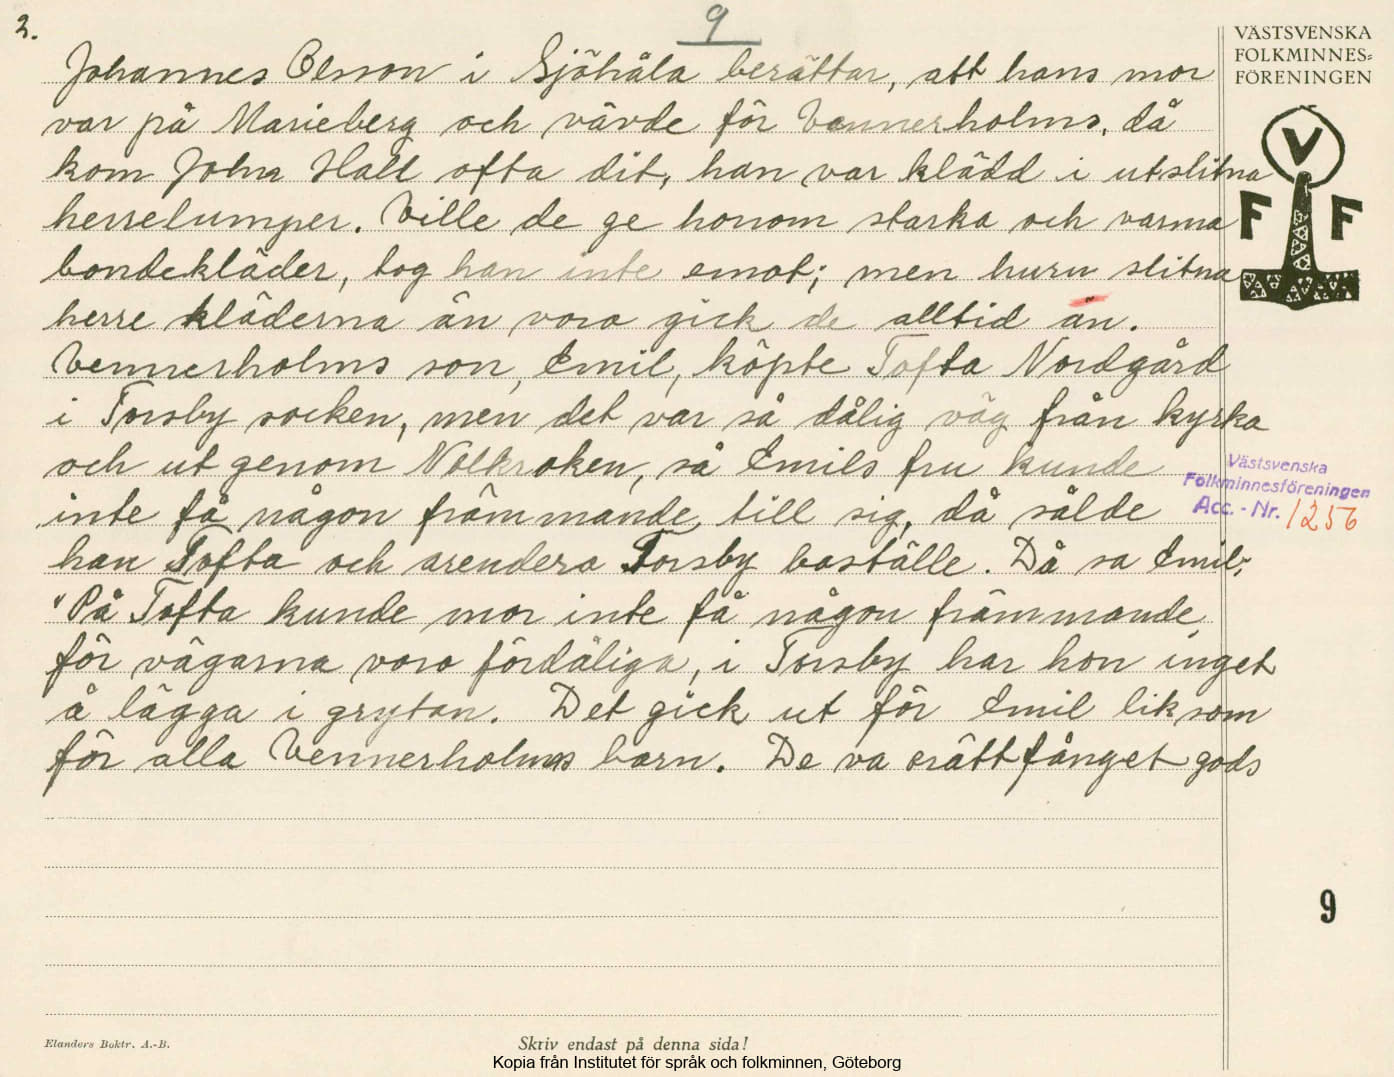 2.
9
Johannes Olsson i Sjöhåla berättar, att hans mor
var på Marieberg och vävde för Vennerholms, då
kom John Hall ofta dit, han var klädd i utslitna
herrelumper. Ville de ge honom starka och varma
bondekläder, tog han inte emot; men huru slitna
herre kläderna än voro gick de alltid an.
Vennerholms son, Emil, köpte Tofta Nordgård
i Torsby socken, men det var så dålig väg från kyrka
och ut genom Nolkroken, så Emils fru kunde
inte få någon främmande till sig, då sålde
han Tofta och arendera Torsby boställe. Då sa Emil;
"På Tofta kunde mor inte få någon främmande,
för vägarna voro fördåliga, i Torsby har hon inget
å lägga i grytan. Det gick ut för Emil liksom
för alla Vennerholms barn. De va orättfånget gods
VÄSTSVENSKA
FOLKMINNES=
FÖRENINGEN
V
F F
Västsvenska
Folkminnesföreningen
Acc. - Nr. 1256
9
Elanders Boktr. A.-B.
Skriv endast på denna sida!
Kopia från Institutet för språk och folkminnen, Göteborg